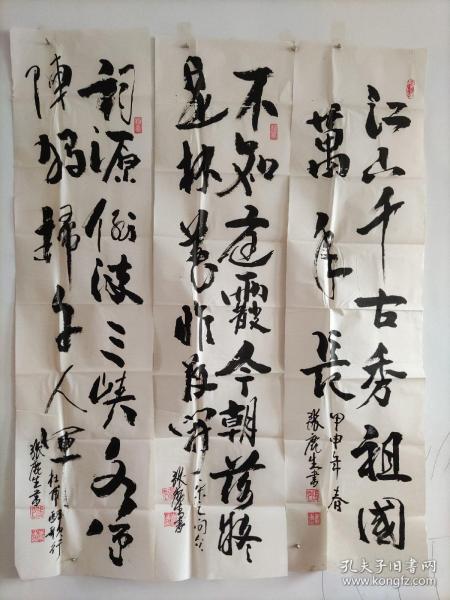 江山千古秀祖國
萬年長
甲申年春
張鹿生書
不知庭霰今朝落疑
是林花昨夜開
宋之问句
張鹿生書
詞源倒流三峡水筆
陣獨掃千人軍
杜甫醉歌行
張鹿生書
孔夫子旧书网